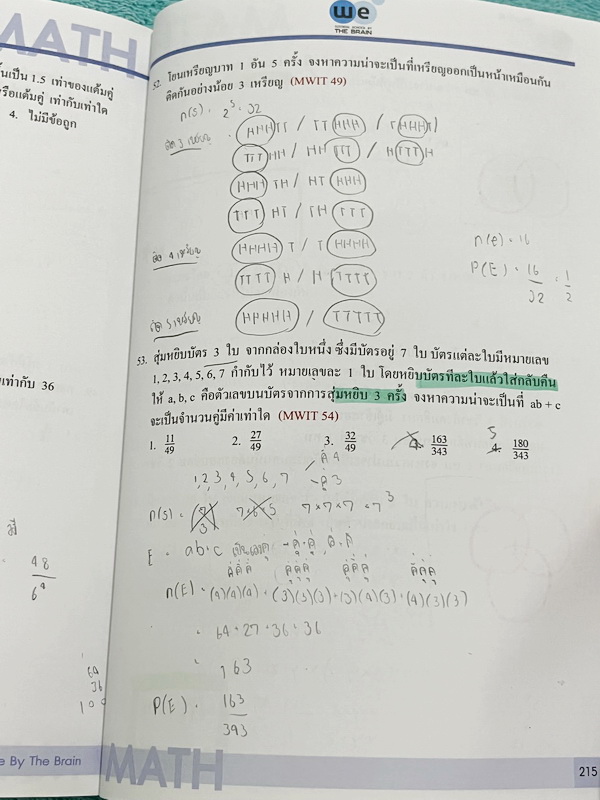 MATH
we
THE BRAIN
ั้นเป็น 1.5 เท่าของแต้มคู่
รือแต้มคู่ เท่ากับเท่าใด
4. ไม่มีข้อถูก
เท่ากับ 36
48
6⁴
64
36
e By The Brain
52. โยนเหรียญบาท 1 อัน 5 ครั้ง จงหาความน่าจะเป็นที่เหรียญออกเป็นหน้าเหมือนกัน
ติดกันอย่างน้อย 3 เหรียญ (MWIT 49)
n(S) = 2⁵ = 32
ติด 3 เหรียญ HHHTT / TTHHH / THHHT
TTTHH / HHTTT / HTTTH
HHHTH / HTHHH
TTTHT / THTTT
ติด 4 เหรียญ HHHHT / THHHH
TTTTH / HTTTT
ติด 5 เหรียญ HHHHH / TTTTT
n(E) = 16
P(E) = 16/32 = 1/2
53. สุ่มหยิบบัตร 3 ใบ จากกล่องใบหนึ่ง ซึ่งมีบัตรอยู่ 7 ใบ บัตรแต่ละใบมีหมายเลข
1, 2, 3, 4, 5, 6, 7 กำกับไว้ หมายเลขละ 1 ใบ โดยหยิบบัตรทีละใบแล้วใส่กลับคืน
ให้ a, b, c คือตัวเลขบนบัตรจากการสุ่มหยิบ 3 ครั้ง จงหาความน่าจะเป็นที่ ab + c
จะเป็นจำนวนคู่มีค่าเท่าใด (MWIT 54)
1. 11/49 2. 27/49 3. 32/49 4. 163/343 5 4. 180/343
1, 2, 3, 4, 5, 6, 7 คี่ 4
คู่ 3
n(S) = 7×6×5 7×7×7 = 7³
E = ab+c เป็นเลขคู่ → คู่+คู่, คี่+คี่
คี่คี่คี่ คู่คู่คู่ คู่คี่คู่ คี่คู่คู่
n(E) = (4)(4)(4) + (3)(3)(3) + (3)(4)(3) + (4)(3)(3)
= 64+27+36+36
= 163
P(E) = 163
343
MATH
215